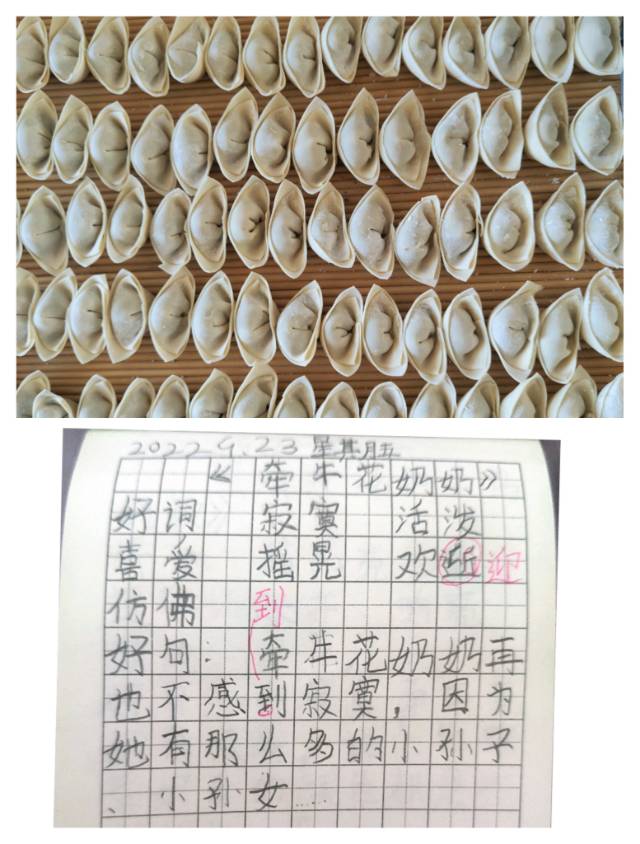 2022.9.23 星其月五
《牵牛花奶奶》
好词 寂寞 活泼
喜爱 摇晃 欢迎 迎
仿佛 到
好句:牵牛花奶奶再
也不感到寂寞,因为
她有那么多的小孙子
、小孙女……